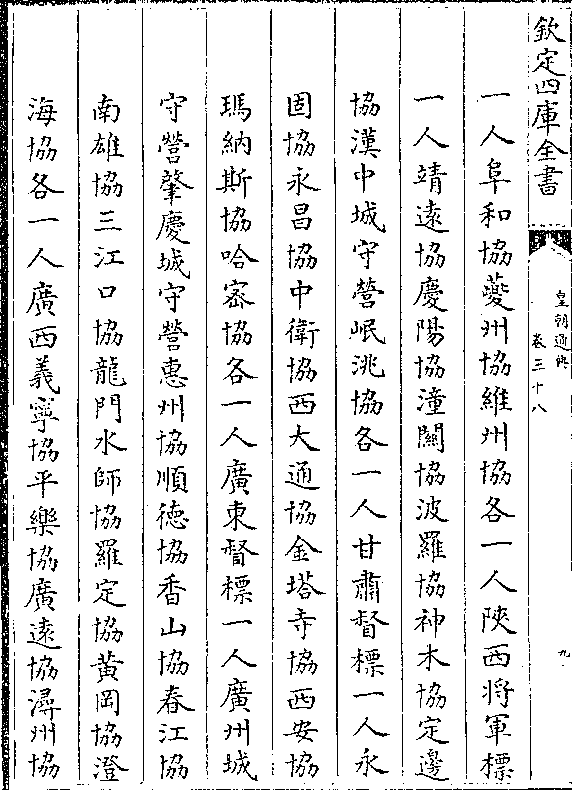 欽定四庫全書
皇朝通典
卷三十八
九
一人阜和協夔州協維州協各一人陜西将軍標
一人靖遠協慶陽協潼關協波羅協神木協定邊
協漢中城守營岷洮協各一人甘肅督標一人永
固協永昌協中衛協西大通協金塔寺協西安協
瑪納斯協哈宻協各一人廣東督標一人廣州城
守營肇慶城守營惠州協順徳協香山協春江協
南雄協三江口協龍門水師協羅定協黃岡協澄
海協各一人廣西義寧協平樂協廣遠協潯州協